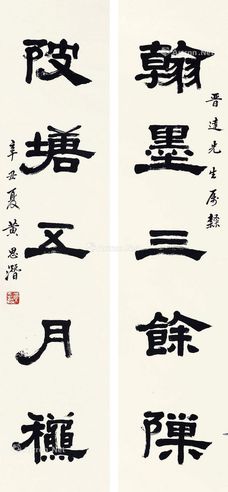 晉達先生屬隸
翰墨三餘隟
陂塘五月龝
辛丑夏黃思潛